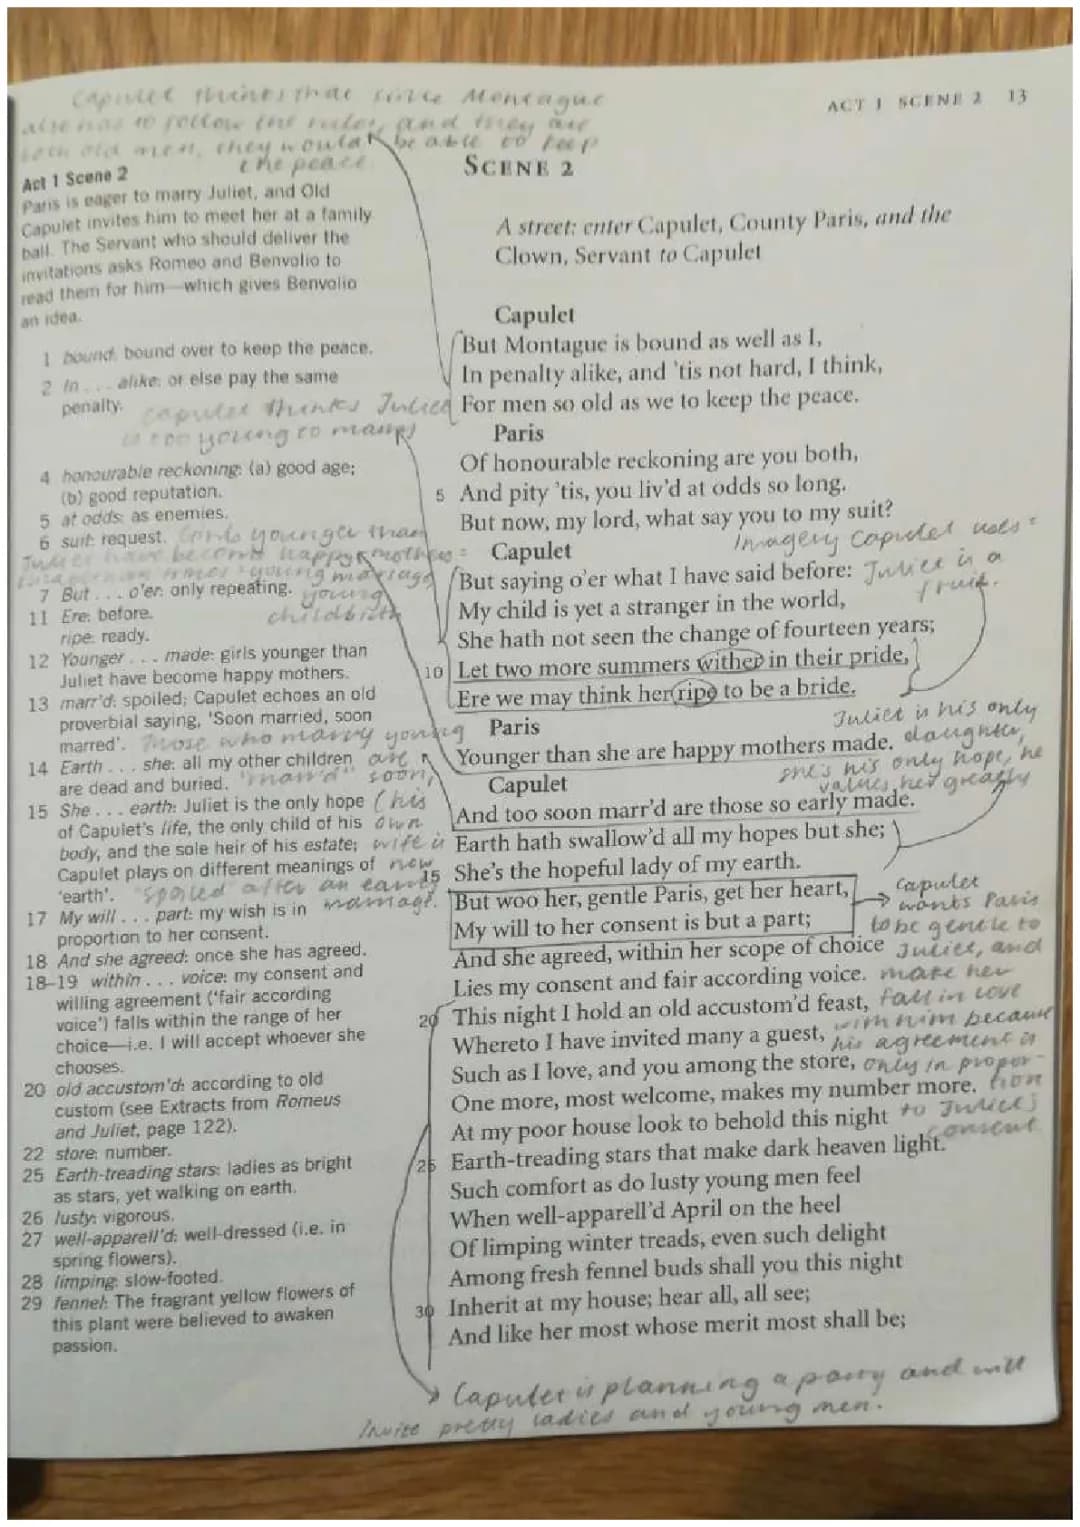 Capulet thinks that since Montague
also has to follow the rules, and they are
both old men, they would be able to keep
the peace.
ACT 1 SCENE 2 13
Act 1 Scene 2
Paris is eager to marry Juliet, and Old
Capulet invites him to meet her at a family
ball. The Servant who should deliver the
invitations asks Romeo and Benvolio to
read them for him—which gives Benvolio
an idea.
1 bound: bound over to keep the peace.
2 In . . . alike: or else pay the same
penalty.
Capulet thinks Juliet
is too young to marry
4 honourable reckoning: (a) good age;
(b) good reputation.
5 at odds: as enemies.
6 suit: request.
younger than
Juliet have become happy mothers =
young marriage
young
childbirth
7 But . . . o'er: only repeating.
11 Ere: before.
ripe: ready.
12 Younger . . . made: girls younger than
Juliet have become happy mothers.
13 marr'd: spoiled; Capulet echoes an old
proverbial saying, 'Soon married, soon
marred'.
Those who marry young
are
"marr'd" soon,
14 Earth . . . she: all my other children
are dead and buried.
15 She . . . earth: Juliet is the only hope
of Capulet's life, the only child of his
body, and the sole heir of his estate;
Capulet plays on different meanings of
'earth'.
(his
own
wife is
now
"spoiled after an early
marriage.
17 My will . . . part: my wish is in
proportion to her consent.
18 And she agreed: once she has agreed.
18–19 within . . . voice: my consent and
willing agreement ('fair according
voice') falls within the range of her
choice—i.e. I will accept whoever she
chooses.
20 old accustom'd: according to old
custom (see Extracts from Romeus
and Juliet, page 122).
22 store: number.
25 Earth-treading stars: ladies as bright
as stars, yet walking on earth.
26 lusty: vigorous.
27 well-apparell'd: well-dressed (i.e. in
spring flowers).
28 limping: slow-footed.
29 fennel: The fragrant yellow flowers of
this plant were believed to awaken
passion.
SCENE 2
A street: enter Capulet, County Paris, and the
Clown, Servant to Capulet
Capulet
But Montague is bound as well as I,
In penalty alike, and 'tis not hard, I think,
For men so old as we to keep the peace.
Paris
Of honourable reckoning are you both,
5 And pity 'tis, you liv'd at odds so long.
But now, my lord, what say you to my suit?
Imagery Capulet uses =
Juliet is a
fruit.
Capulet
But saying o'er what I have said before:
My child is yet a stranger in the world,
She hath not seen the change of fourteen years;
10 Let two more summers wither in their pride,
Ere we may think her ripe to be a bride.
Paris
Younger than she are happy mothers made.
Juliet is his only
daughter,
she's his only hope, he
values her greatly
Capulet
And too soon marr'd are those so early made.
Earth hath swallow'd all my hopes but she;
15 She's the hopeful lady of my earth.
But woo her, gentle Paris, get her heart,
My will to her consent is but a part;
And she agreed, within her scope of choice
Lies my consent and fair according voice.
20 This night I hold an old accustom'd feast,
Whereto I have invited many a guest,
Such as I love, and you among the store,
One more, most welcome, makes my number more.
At my poor house look to behold this night
25 Earth-treading stars that make dark heaven light.
Such comfort as do lusty young men feel
When well-apparell'd April on the heel
Of limping winter treads, even such delight
Among fresh fennel buds shall you this night
30 Inherit at my house; hear all, all see;
And like her most whose merit most shall be;
Capulet
wants Paris
to be gentle to
Juliet, and
make her
fall in love
with him because
his agreement is
only in propor-
tion
to Juliet's
consent
Capulet is planning a party and will
Invite pretty ladies and young men.